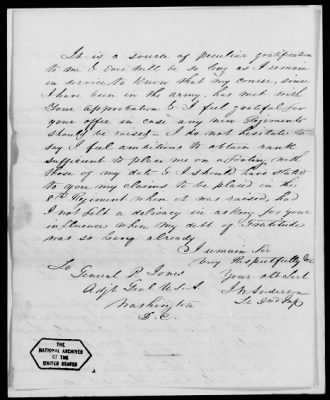 It is a source of peculiar gratification
to me & ever will be so long as I remain
in service to know that my course, since
I have been in the army, has met with
Your approbation & I feel grateful for
your offer in case any new Regiments
should be raised— I do not hesitate to
say I feel ambitious to obtain rank
sufficient to place me on a footing with
those of my date & I should have stated
to you my claims to be placed in the
8th Regiment when it was raised, had
I not felt a delicacy in asking for your
influence when my debt of Gratitude
was so heavy already
I remain Sir
Very Respectfully &c
Your obt Servt
To
General R Jones
Adjt Genl U.S.A
Washington
D.C.
J W Anderson
Lt 2nd Inf
THE
NATIONAL ARCHIVES
OF THE
UNITED STATES